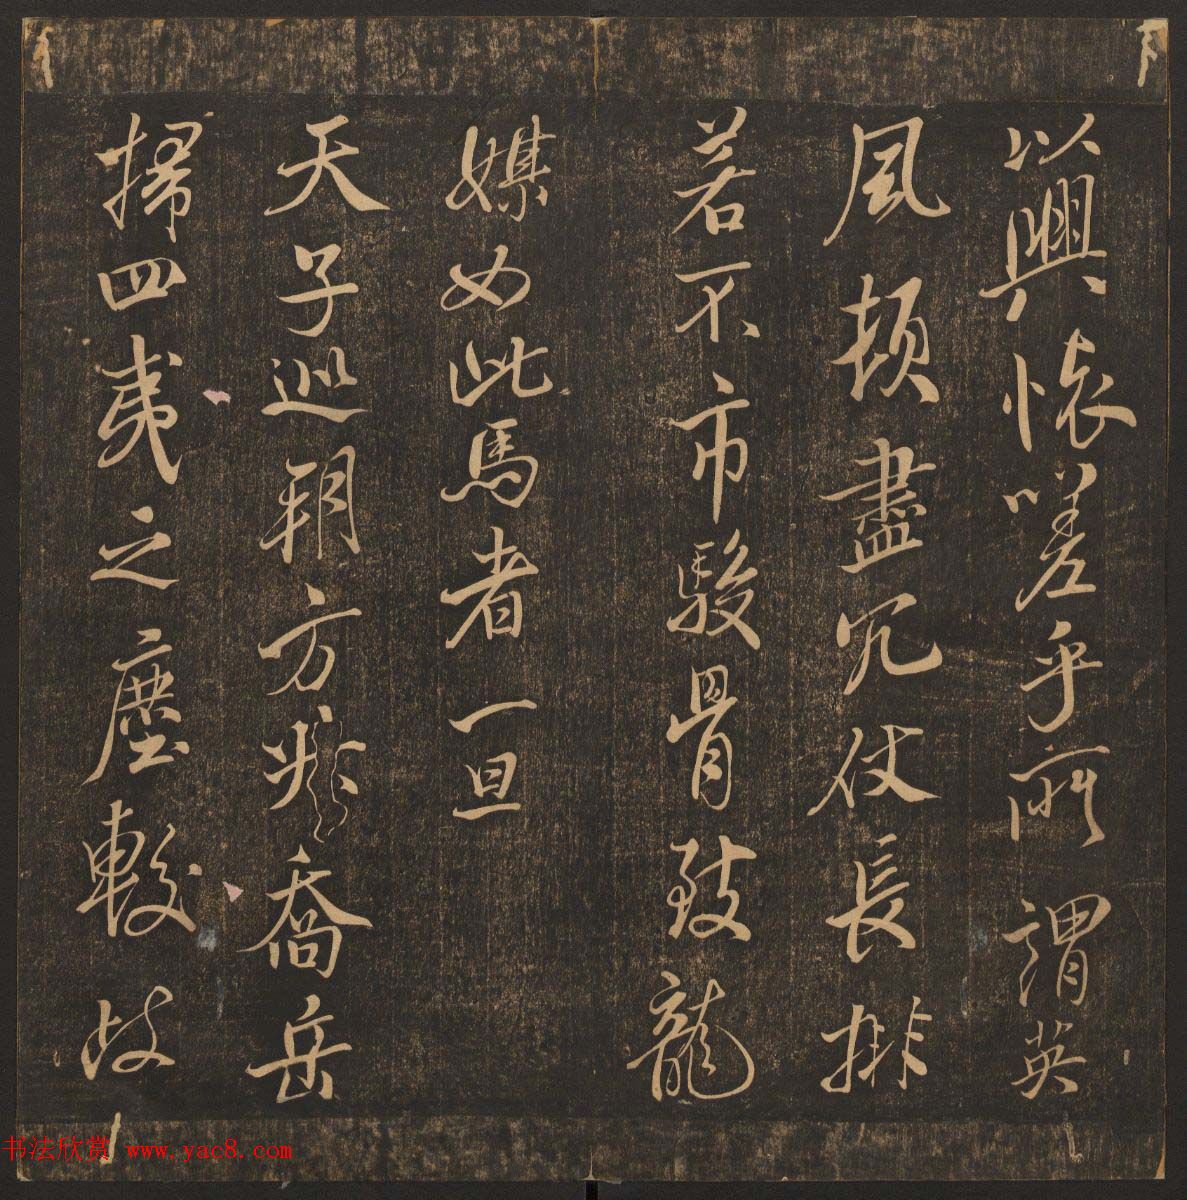 以興懷嗟乎所謂英
風頓盡冗仗長排
若不市駿骨致龍
媒如此馬者一旦
天子巡朔方升喬岳
掃四夷之塵較岐
书法欣赏 www.yac8.com